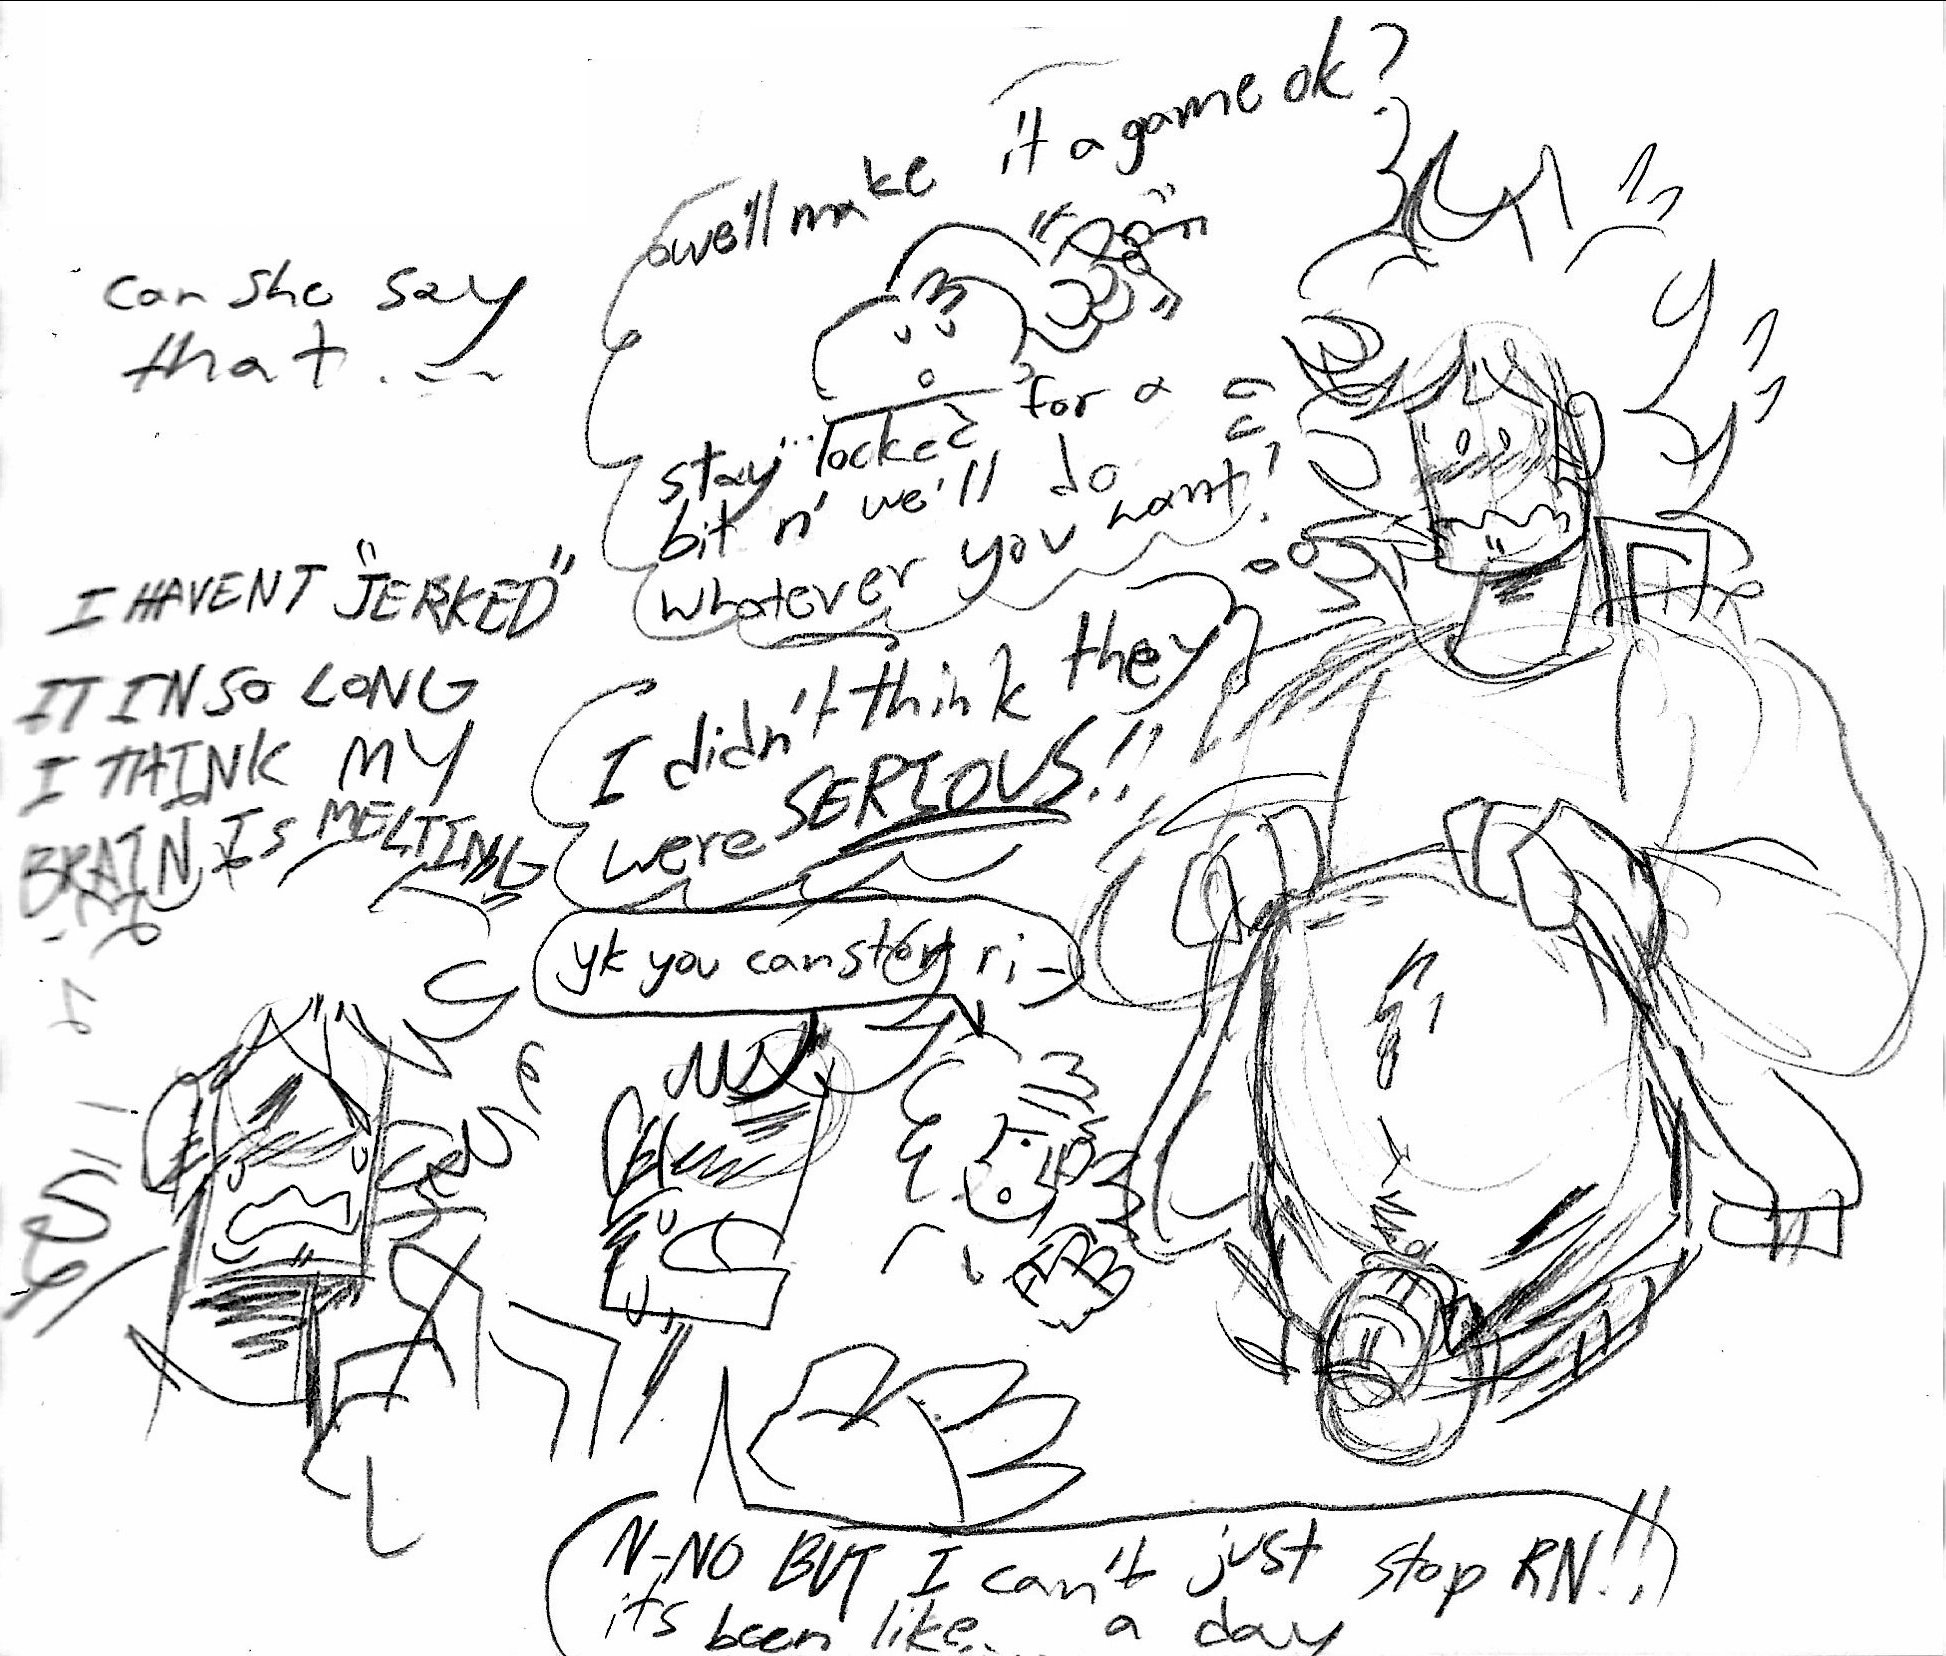 we'll make it a game ok?
can she say
that...
stay... locked for a
bit n' we'll do
whatever you want!
I HAVENT "JERKED"
IT IN SO LONG
I THINK MY
BRAIN IS MELTING
I didn't think they
were SERIOUS!!
yk you can stop ri-
N-NO BUT I can't just stop RN!!
its been like... a day